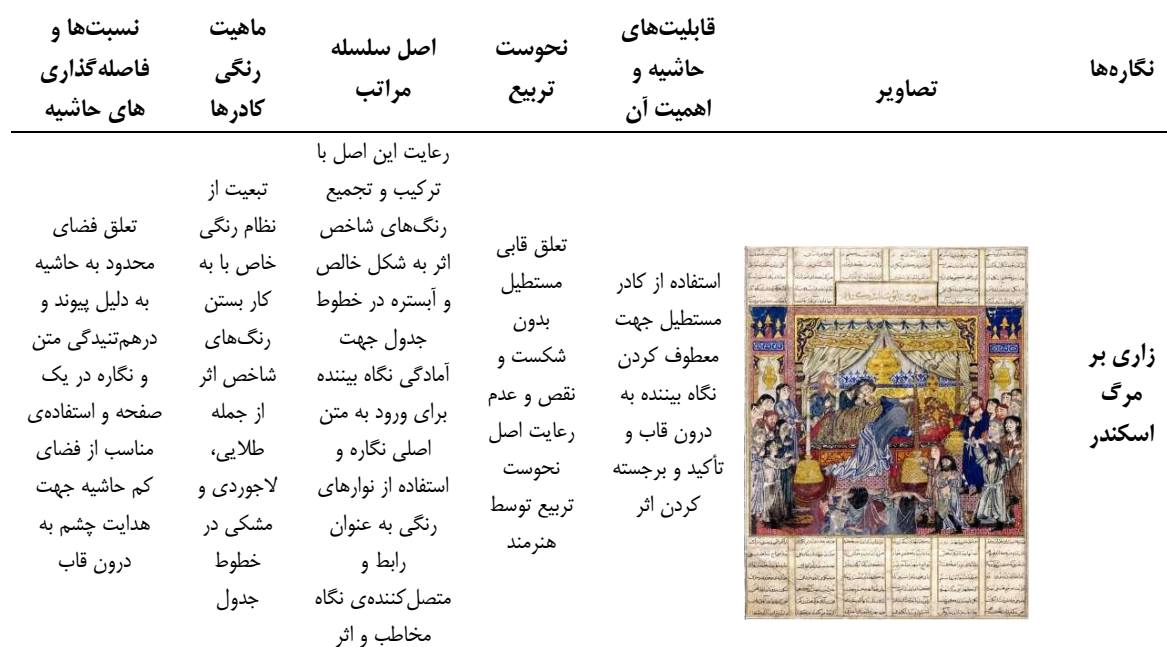 نگاره‌ها
تصاویر
قابلیت‌های
حاشیه و
اهمیت آن
نحوست
تربیع
اصل سلسله
مراتب
ماهیت
رنگی
کادرها
نسبت‌ها و
فاصله‌گذاری
های حاشیه
زاری بر
مرگ
اسکندر
استفاده از کادر
مستطیل جهت
معطوف کردن
نگاه بیننده به
درون قاب و
تأکید و برجسته
کردن اثر
تعلق قابی
مستطیل
بدون
شکست و
نقص و عدم
رعایت اصل
نحوست
تربیع توسط
هنرمند
رعایت این اصل با
ترکیب و تجمیع
رنگ‌های شاخص
اثر به شکل خالص
و آبستره در خطوط
جدول جهت
آمادگی نگاه بیننده
برای ورود به متن
اصلی نگاره و
استفاده از نوارهای
رنگی به عنوان
رابط و
متصل‌کننده‌ی نگاه
مخاطب و اثر
تبعیت از
نظام رنگی
خاص با به
کار بستن
رنگ‌های
شاخص اثر
از جمله
طلایی،
لاجوردی و
مشکی در
خطوط
جدول
تعلق فضای
محدود به حاشیه
به دلیل پیوند و
درهم‌تنیدگی متن
و نگاره در یک
صفحه و استفاده‌ی
مناسب از فضای
کم حاشیه جهت
هدایت چشم به
درون قاب